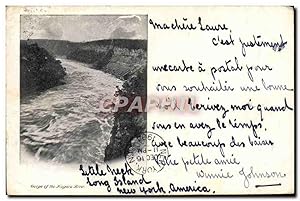 Ma chère Laure
c'est justement
une carte à portal pour
vous souhaiter une bonne
écrivez moi quand
vous en avez le temps.
avec beaucoup des baisers
petite amie
Winnie Johnson
Little Neck
Long Island
New York, America.
Gorge of the Niagara River
CPARAMA